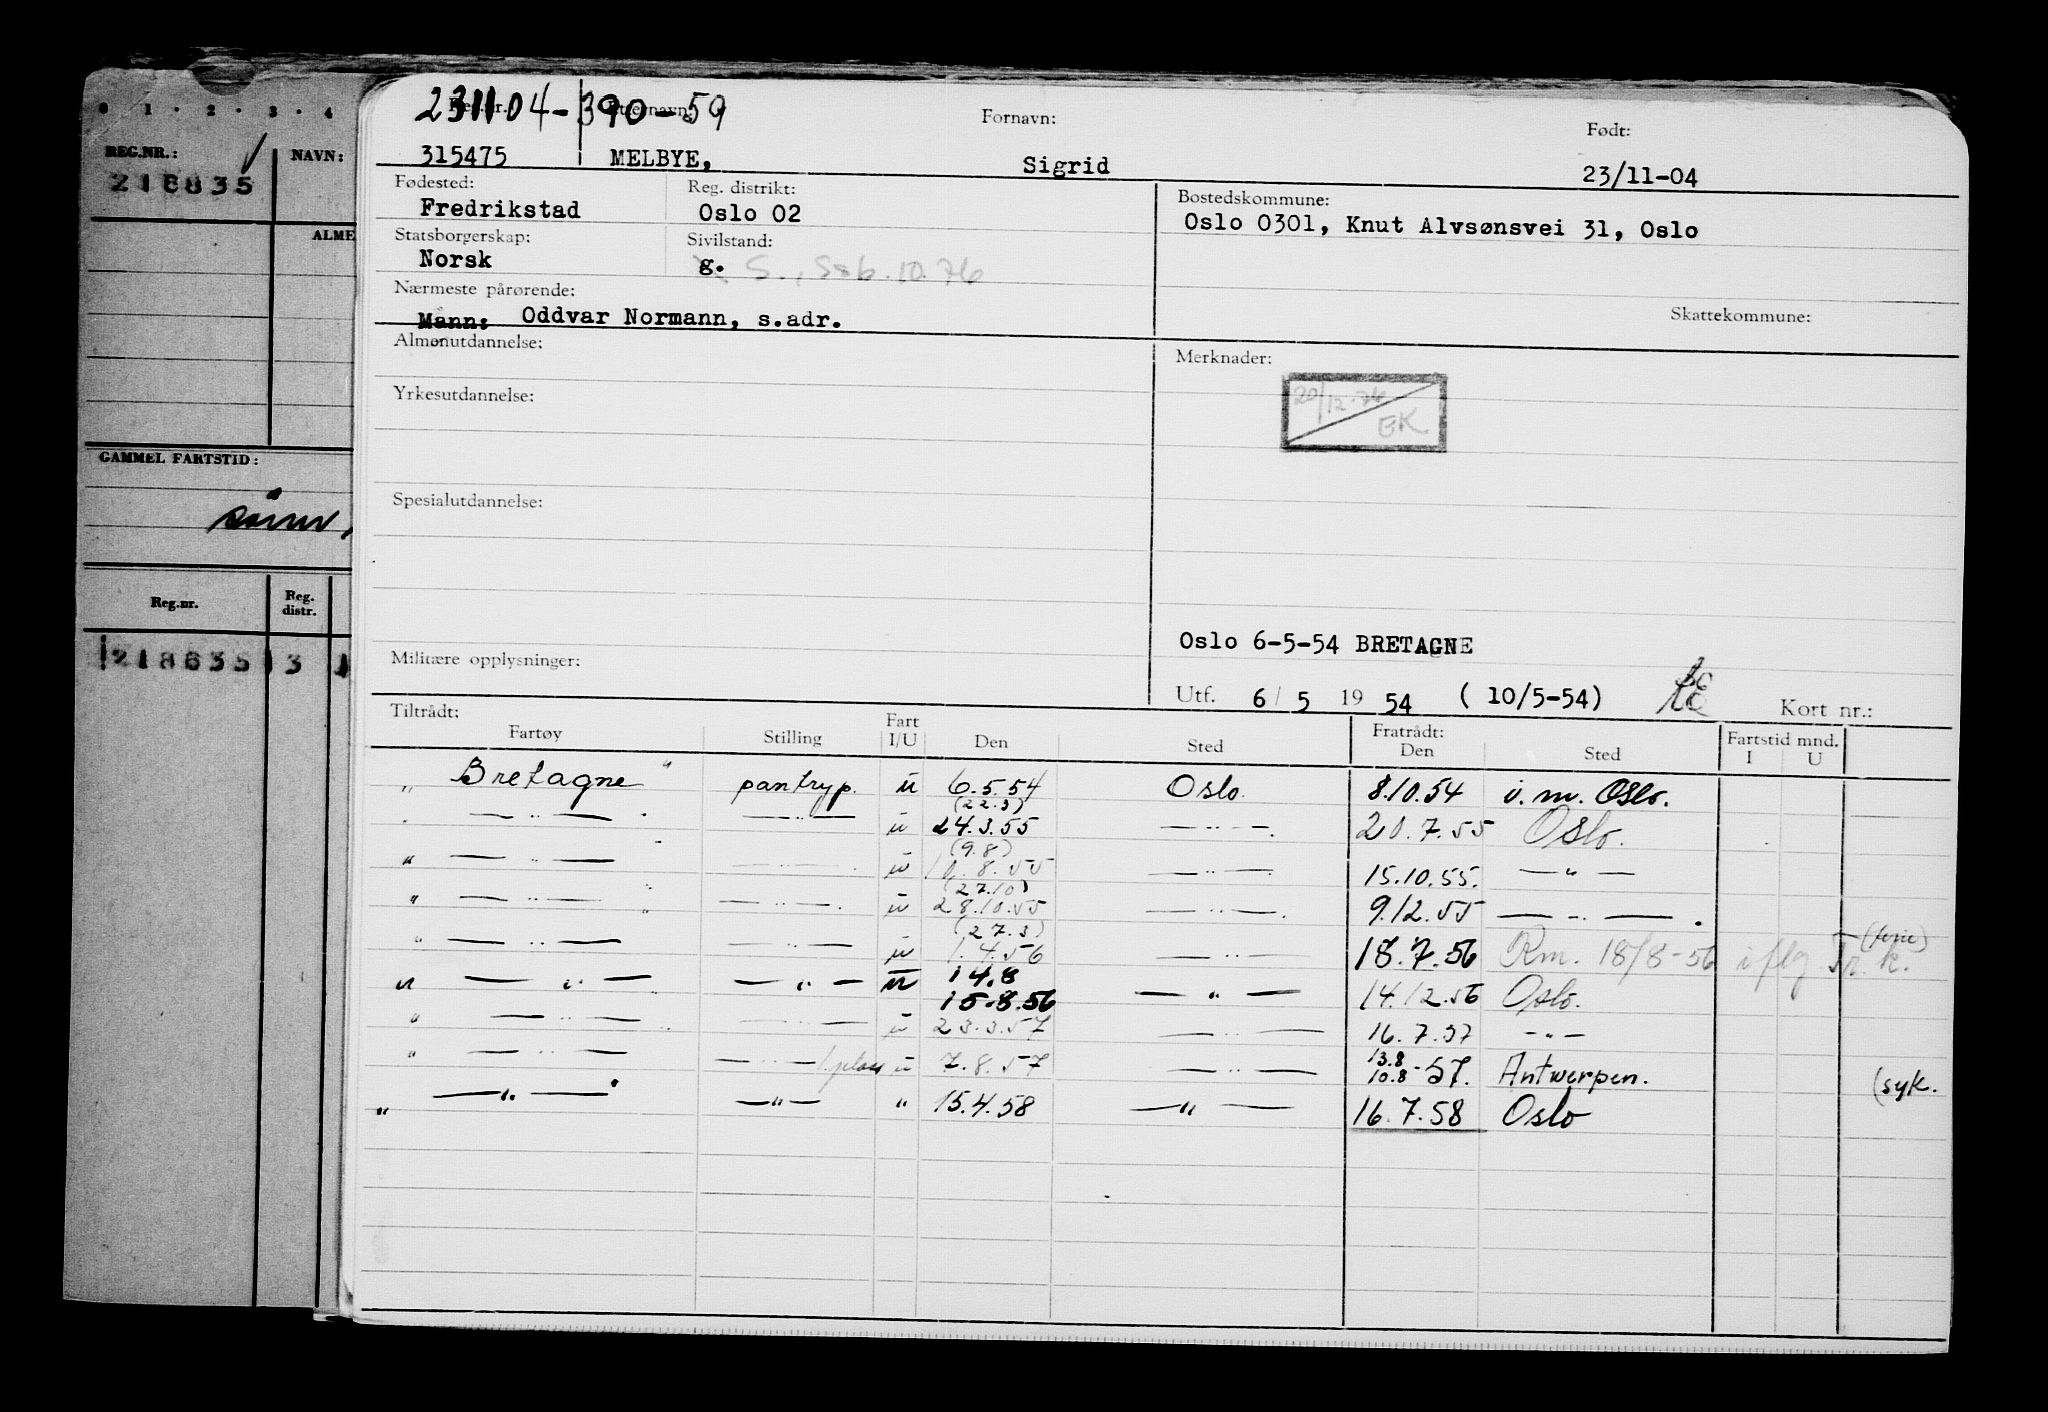 0 1 . 2 . 3 . 4
REG.NR.: NAVN:
218835
ALME
GAMMEL FARTSTID:
Reg.nr. Reg. distr.
218835 3 1
231104-390-59
Reg.nr. Etternavn: Fornavn: Født:
315475 MELBYE, Sigrid 23/11-04
Fødested: Reg. distrikt: Bostedskommune:
Fredrikstad Oslo 02 Oslo 0301, Knut Alvsønsvei 31, Oslo
Statsborgerskap: Sivilstand:
Norsk g. S., 10.76
Nærmeste pårørende: Skattekommune:
Mann: Oddvar Normann, s.adr.
Almenutdannelse: Merknader:
20/12-76 EK
Yrkesutdannelse:
Spesialutdannelse:
Oslo 6-5-54 BRETAGNE
Militære opplysninger:
Utf. 6/ 5 19 54 ( 10/5-54) Kort nr.:
Tiltrådt: Fratrådt: Fartstid mnd.
Fartøy Stilling Fart I/U Den Sted Den Sted I U
" Bretagne " pantryp. u 6.5.54 Oslo. 8.10.54 v.m. Oslo.
(22.3)
" — " — " — " — u 24.3.55 — " — 20.7.55 Oslo.
(9.8)
" — " — " — " — u 10.8.55 — " — 15.10.55. — " —
(27.10)
" — " — " — " — u 28.10.55 — " — 9.12.55 — " — .
(27.3)
" — " — — " — u 1.4.56 — " — 18.7.56 Rm. 18/8-56 i flg Tr. k. (ferie)
" — " — — " — u 14.8
15.8.56 — " — 14.12.56 Oslo.
" — " — — " — u 23.3.57 — " — 16.7.57 — " —
" — " — — " — u 7.8.57 — " — 13.8
10.8-57. Antwerpen. (syk.
" — " — " — " — " 15.4.58 — " — 16.7.58 Oslo